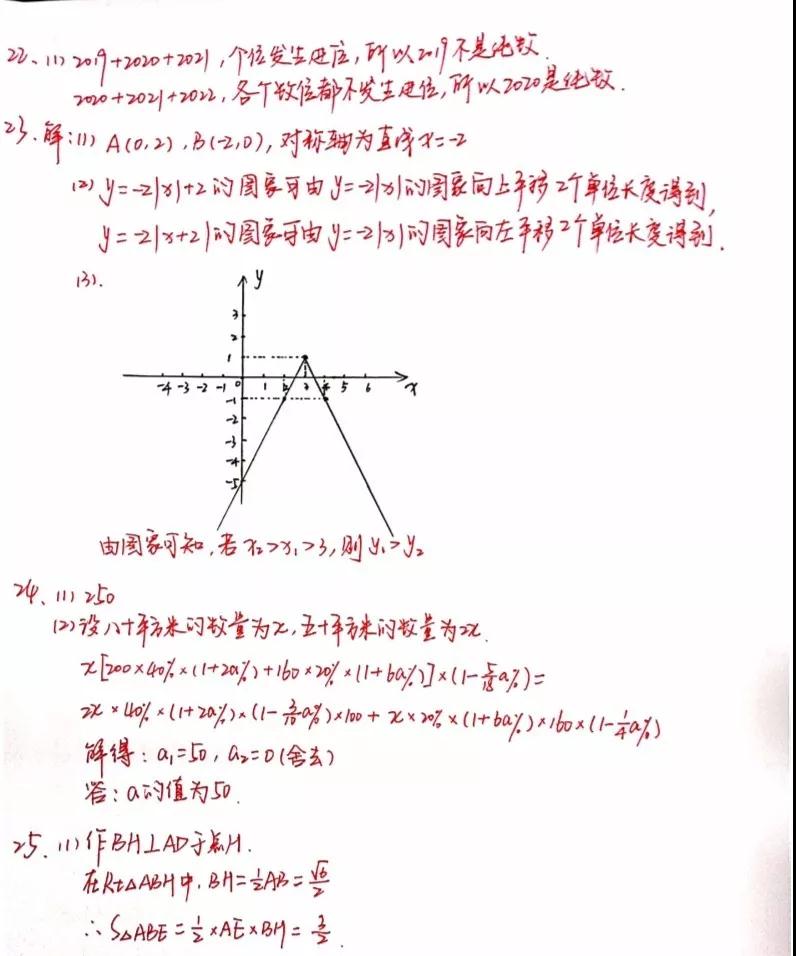 22、(1) 2019+2020+2021,个位发生进位,所以2019不是纯数.
2020+2021+2022,各个数位都不发生进位,所以2020是纯数.
23.解:(1) A(0,2),B(-2,0),对称轴为直线x=-2
(2) y=-2|x|+2的图象可由y=-2|x|的图象向上平移2个单位长度得到,
y=-2|x+2|的图象可由y=-2|x|的图象向左平移2个单位长度得到.
(3).
y
3
2
1
-4 -3 -2 -1 0 1 2 3 4 5 6 x
-1
-2
-3
-4
-5
由图象可知,若x₂>x₁>3,则y₁>y₂
24、(1) 250
(2)设八十平方米的数量为x,五十平方米的数量为2x.
x[200×40%×(1+2a%)+160×20%×(1+6a%)]×(1-5/18a%)=
2x×40%×(1+2a%)×(1-3/10a%)×100+x×20%×(1+6a%)×160×(1-1/4a%)
解得:a₁=50,a₂=0(舍去)
答:a的值为50.
25、(1)作BH⊥AD于点H.
在Rt△ABH中,BH=1/2AB=√6/2
∴S△ABE=1/2×AE×BH=3/2.